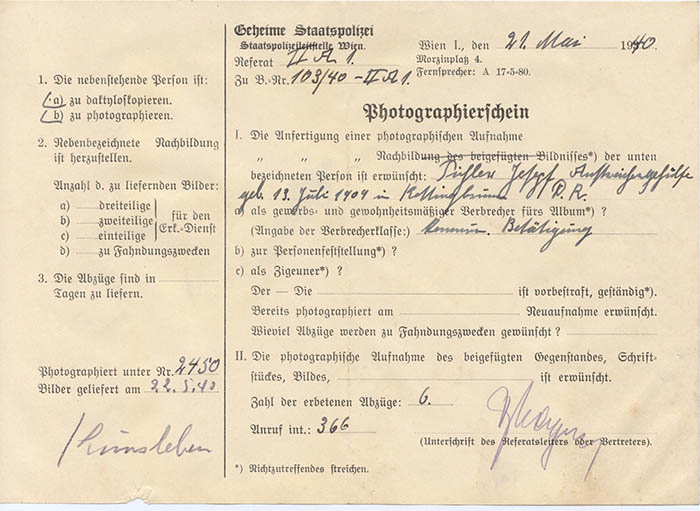 Geheime Staatspolizei
Staatspolizeileitstelle Wien.
Referat II A 1.
Zu B.-Nr. 103/40 - II A 1.
Wien I., den 21. Mai 1940.
Morzinplatz 4.
Fernsprecher: A 17-5-80.
1. Die nebenstehende Person ist:
a) zu daktyloskopieren.
b) zu photographieren.
2. Nebenbezeichnete Nachbildung
ist herzustellen.
Anzahl d. zu liefernden Bilder:
a) dreiteilige
b) zweiteilige
c) einteilige
für den
Erk.-Dienst
d) zu Fahndungszwecken
3. Die Abzüge sind in
Tagen zu liefern.
Photographiert unter Nr. 2450
Bilder geliefert am 22.5.40
Photographierschein
I. Die Anfertigung einer photographischen Aufnahme
" " " Nachbildung des beigefügten Bildnisses*) der unten
bezeichneten Person ist erwünscht: Josef Anstreichergehilfe
geb. 13. Juli 1904 in Kottingbrunn D.R.
a) als gewerbs- und gewohnheitsmäßiger Verbrecher fürs Album*) ?
(Angabe der Verbrecherklasse:) komm. Betätigung
b) zur Personenfeststellung*) ?
c) als Zigeuner*) ?
Der — Die ist vorbestraft, geständig*).
Bereits photographiert am Neuaufnahme erwünscht.
Wieviel Abzüge werden zu Fahndungszwecken gewünscht ?
II. Die photographische Aufnahme des beigefügten Gegenstandes, Schrift-
stückes, Bildes, ist erwünscht.
Zahl der erbetenen Abzüge: 6.
Anruf int.: 366
(Unterschrift des Referatsleiters oder Vertreters).
*) Nichtzutreffendes streichen.